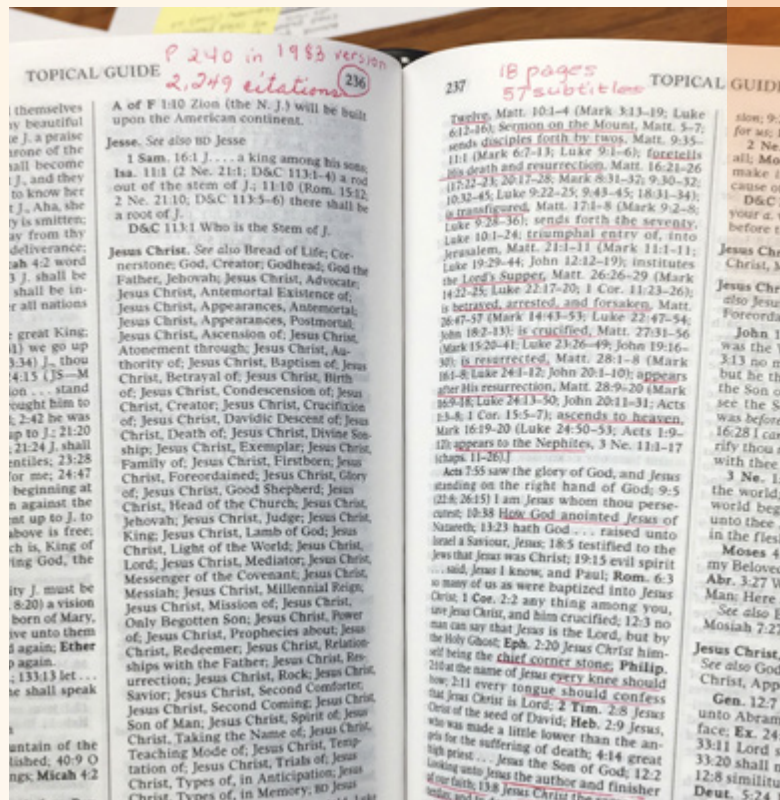 P 240 in 1983 version
2,249 citations
TOPICAL GUIDE
236
themselves
beautiful
J. a praise
throne of the
all become
J., and they
to know her
J., Aha, she
y is smitten;
ay from thy
deliverance;
4:2 word
J. shall be
shall be in-
r all nations
great King;
we go up
3:34) J., thou
4:15 (JS—M
stand
ought him to
2:42 he was
up to J.; 21:20
21:24 J. shall
entiles; 23:28
for me; 24:47
beginning at
against the
nt up to J. to
above is free;
ch is, King of
ing God, the
ity J. must be
8:20) a vision
born of Mary,
ve unto them
again; Ether
again.
133:13 let . . .
e shall speak
untain of the
lished; 40:9 O
ngs; Micah 4:2
A of F 1:10 Zion (the N. J.) will be built
upon the American continent.
Jesse. See also BD Jesse
1 Sam. 16:1 J. . . . a king among his sons;
Isa. 11:1 (2 Ne. 21:1; D&C 113:1–4) a rod
out of the stem of J.; 11:10 (Rom. 15:12;
2 Ne. 21:10; D&C 113:5–6) there shall be
a root of J.
D&C 113:1 Who is the Stem of J.
Jesus Christ. See also Bread of Life; Cor-
nerstone; God, Creator; Godhead; God the
Father, Jehovah; Jesus Christ, Advocate;
Jesus Christ, Antemortal Existence of;
Jesus Christ, Appearances, Antemortal;
Jesus Christ, Appearances, Postmortal;
Jesus Christ, Ascension of; Jesus Christ,
Atonement through; Jesus Christ, Au-
thority of; Jesus Christ, Baptism of; Jesus
Christ, Betrayal of; Jesus Christ, Birth
of; Jesus Christ, Condescension of; Jesus
Christ, Creator; Jesus Christ, Crucifixion
of; Jesus Christ, Davidic Descent of; Jesus
Christ, Death of; Jesus Christ, Divine Son-
ship; Jesus Christ, Exemplar; Jesus Christ,
Family of; Jesus Christ, Firstborn; Jesus
Christ, Foreordained; Jesus Christ, Glory
of; Jesus Christ, Good Shepherd; Jesus
Christ, Head of the Church; Jesus Christ,
Jehovah; Jesus Christ, Judge; Jesus Christ,
King; Jesus Christ, Lamb of God; Jesus
Christ, Light of the World; Jesus Christ,
Lord; Jesus Christ, Mediator; Jesus Christ,
Messenger of the Covenant; Jesus Christ,
Messiah; Jesus Christ, Millennial Reign;
Jesus Christ, Mission of; Jesus Christ,
Only Begotten Son; Jesus Christ, Power
of; Jesus Christ, Prophecies about; Jesus
Christ, Redeemer; Jesus Christ, Relation-
ships with the Father; Jesus Christ, Res-
urrection; Jesus Christ, Rock; Jesus Christ,
Savior; Jesus Christ, Second Comforter;
Jesus Christ, Second Coming; Jesus Christ,
Son of Man; Jesus Christ, Spirit of; Jesus
Christ, Taking the Name of; Jesus Christ,
Teaching Mode of; Jesus Christ, Temp-
tation of; Jesus Christ, Trials of; Jesus
Christ, Types of, in Anticipation; Jesus
Christ, Types of, in Memory; BD Jesus
237
18 pages
57 subtitles
TOPICAL GUIDE
Twelve, Matt. 10:1–4 (Mark 3:13–19; Luke
6:12–16); Sermon on the Mount, Matt. 5–7;
sends disciples forth by twos, Matt. 9:35–
11:1 (Mark 6:7–13; Luke 9:1–6); foretells
His death and resurrection, Matt. 16:21–26
(17:22–23; 20:17–28; Mark 8:31–37; 9:30–32;
10:32–45; Luke 9:22–25; 9:43–45; 18:31–34);
is transfigured, Matt. 17:1–8 (Mark 9:2–8;
Luke 9:28–36); sends forth the seventy,
Luke 10:1–24; triumphal entry of, into
Jerusalem, Matt. 21:1–11 (Mark 11:1–11;
Luke 19:29–44; John 12:12–19); institutes
the Lord's Supper, Matt. 26:26–29 (Mark
14:22–25; Luke 22:17–20; 1 Cor. 11:23–26);
is betrayed, arrested, and forsaken, Matt.
26:47–57 (Mark 14:43–53; Luke 22:47–54;
John 18:2–13); is crucified, Matt. 27:31–56
(Mark 15:20–41; Luke 23:26–49; John 19:16–
30); is resurrected, Matt. 28:1–8 (Mark
16:1–8; Luke 24:1–12; John 20:1–10); appears
after His resurrection, Matt. 28:9–20 (Mark
16:9–18; Luke 24:13–50; John 20:11–31; Acts
1:3–8; 1 Cor. 15:5–7); ascends to heaven,
Mark 16:19–20 (Luke 24:50–53; Acts 1:9–
12); appears to the Nephites, 3 Ne. 11:1–17
(chaps. 11–26).]
Acts 7:55 saw the glory of God, and Jesus
standing on the right hand of God; 9:5
(22:8; 26:15) I am Jesus whom thou perse-
cutest; 10:38 How God anointed Jesus of
Nazareth; 13:23 hath God . . . raised unto
Israel a Saviour, Jesus; 18:5 testified to the
Jews that Jesus was Christ; 19:15 evil spirit
. . . said, Jesus I know, and Paul; Rom. 6:3
so many of us as were baptized into Jesus
Christ; 1 Cor. 2:2 any thing among you,
save Jesus Christ, and him crucified; 12:3 no
man can say that Jesus is the Lord, but by
the Holy Ghost; Eph. 2:20 Jesus Christ him-
self being the chief corner stone; Philip.
2:10 at the name of Jesus every knee should
bow; 2:11 every tongue should confess
that Jesus Christ is Lord; 2 Tim. 2:8 Jesus
Christ of the seed of David; Heb. 2:9 Jesus,
who was made a little lower than the an-
gels for the suffering of death; 4:14 great
high priest . . . Jesus the Son of God; 12:2
Looking unto Jesus the author and finisher
of our faith; 13:8 Jesus Christ the
sion; 9:
for us;
2 Ne.
all; Mo
make i
cause o
D&C
your a
before t
Jesus Chr
Christ,
Jesus Chr
also Jesu
Foreorda
John 1
was the
3:13 no m
but he th
the Son o
see the S
was before
16:28 I ca
rify thou
with thee
3 Ne. 1
the world
world beg
unto thee
in the fles
Moses 4
my Beloved
Abr. 3:27 W
Man: Here
See also
Mosiah 7:2
Jesus Christ,
See also God
Christ, App
Gen. 12:7
unto Abram
face; Ex. 24
33:11 Lord s
33:20 shall n
12:8 similitu
Deut. 5:24